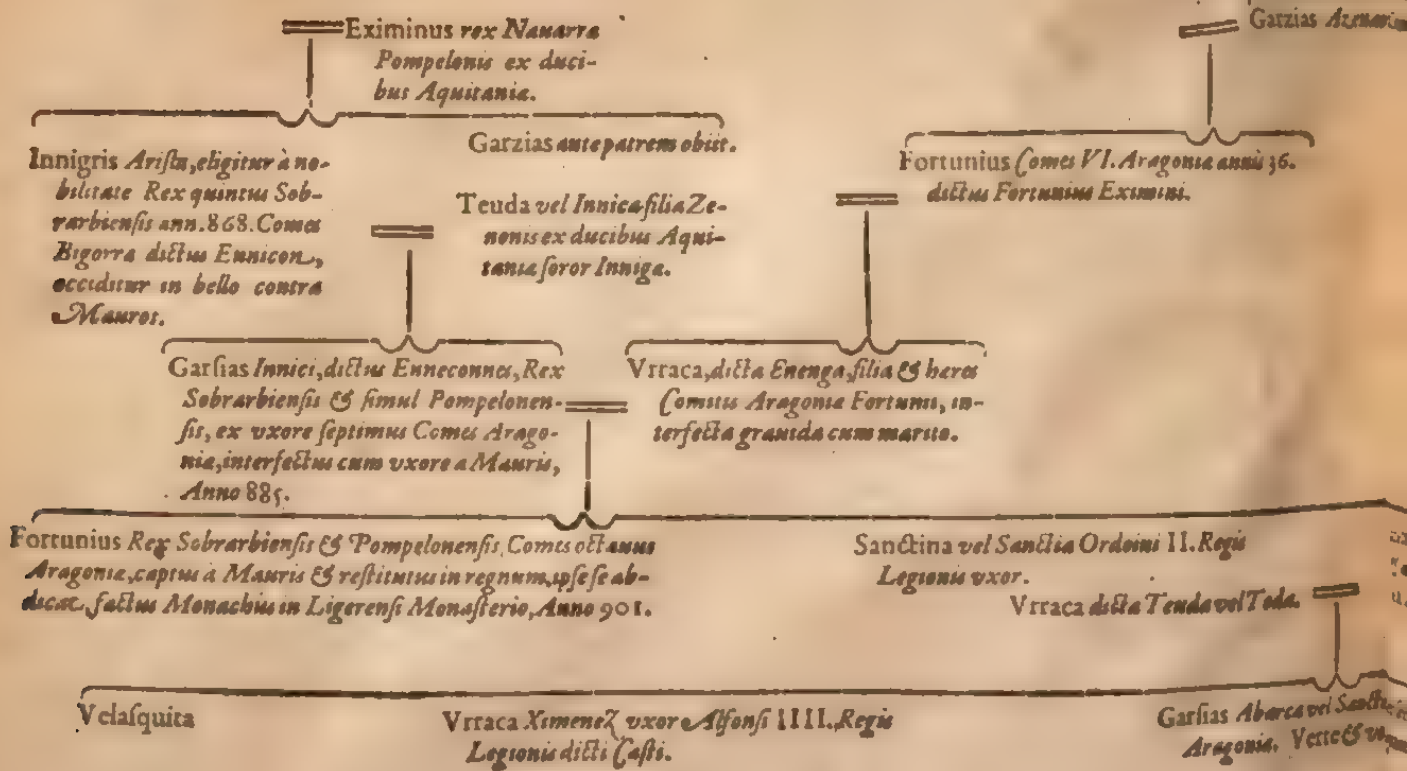 Eximinus rex Nauarræ
Pompelonis ex duci-
bus Aquitaniæ.
Garzias
Innigris Arista, eligitur à no-
bilitate Rex quintus Sob-
rarbiensis ann. 868. Comes
Bigorræ dictus Ennicon,
occiditur in bello contra
Mauros.
Garzias ante patrem obiit.
Teuda vel Innica filia Ze-
nonis ex ducibus Aqui-
taniæ soror Innigæ.
Fortunius Comes VI. Aragoniæ annis 36.
dictus Fortunius Eximini.
Garsias Innici, dictus Enneconnes, Rex
Sobrarbiensis & simul Pompelonen-
sis, ex vxore septimus Comes Arago-
niæ, interfectus cum vxore a Mauris,
Anno 885.
Vrraca, dicta Enenga, filia & hæres
Comitis Aragoniæ Fortunii, in-
terfecta grauida cum marito.
Fortunius Rex Sobrarbiensis & Pompelonensis, Comes octauus
Aragoniæ, captus à Mauris & restitutus in regnum, ipse se ab-
dicat, factus Monachus in Ligerensi Monasterio, Anno 901.
Sanctina vel Sanctia Ordoini II. Regis
Legionis vxor.
Vrraca dicta Teuda vel Toda.
Velasquita
Vrraca Ximenez vxor Alfonsi IIII. Regis
Legionis dicti Casti.
Garsias Abarca vel
Aragoniæ. &